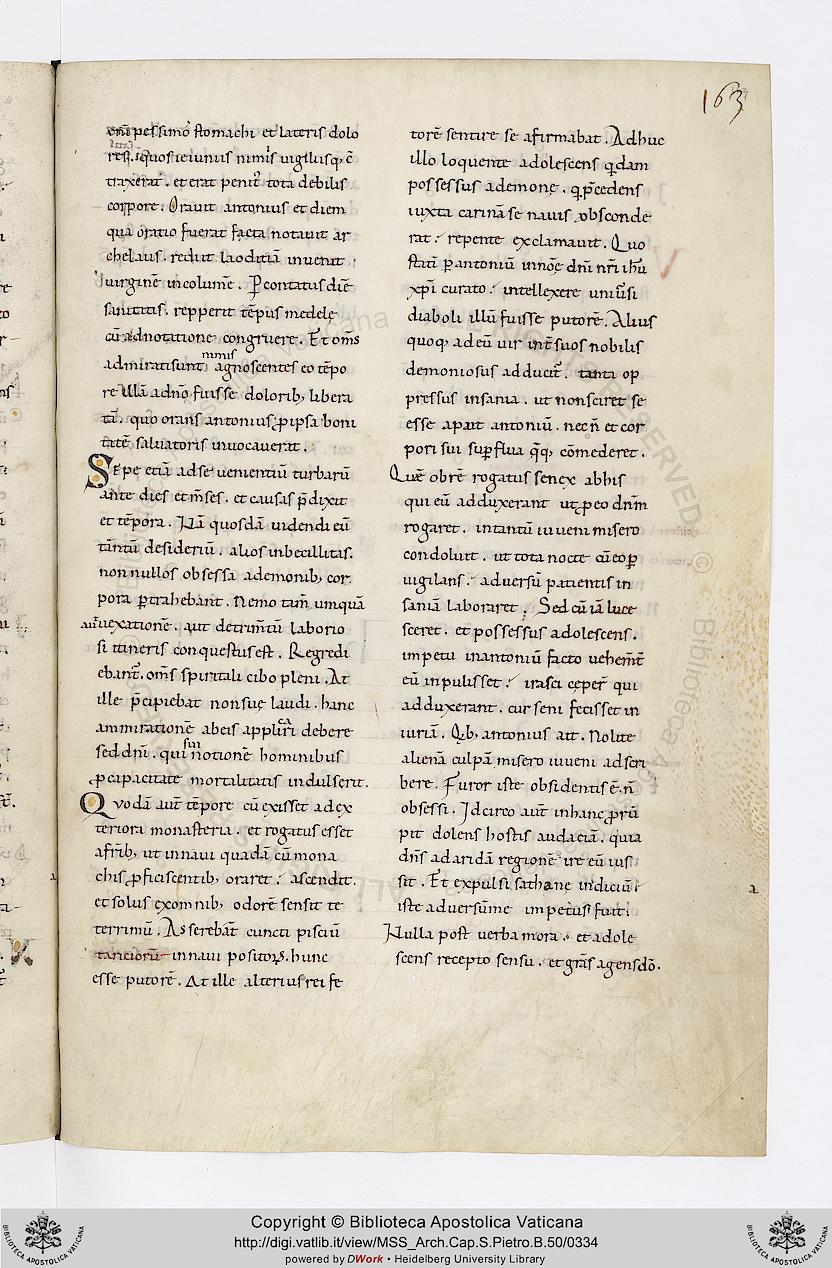 163
enī pessimo᷒ stomachi et lateris dolo
res. quos ieiuniis nimis uigiliisq; c̄
traxerat. et erat penit᷒ tota debilis
corpore. Orauit antonius et diem
qua oratio fuerat facta notauit ar
chelaus. rediit laoditiā inuenit
uirginē incolumē. Pcontatus diē
sanitatis. repperit tēpus medelę
cū adnotatione congruere. Et om̄s
nimis
admirati sunt, agnoscentes eo tēpo
re illā a dn̄o fuisse dolorib; libera
tā. quo orans antonius p ipsa boni
tatē saluatoris inuocauerat.
Sępe etiā ad se uenientiū turbarū
ante dies et m̄ses. et causas p̄dixit
et tēpora. Nā quosdā uidendi eū
tantū desideriū. alios inbecillitas.
non nullos obsessa a demonib; cor
pora ptrahebant. Nemo tam̄ umquā
aut uexationē. aut detrim̄tū laborio
si itineris conquestus est. Regredi
ebant᷒. om̄s spiritali cibo pleni. At
ille p̄cipiebat non suę laudi. hanc
ca
ammirationē ab eis appliri debere
sui
sed dn̄i. qui notionē hominibus
p capacitate mortalitatis indulserit.
Quodā aut̄ tēpore cū exisset ad ex
teriora monasteria. et rogatus esset
a fr̄ib; ut in naui quadā cū mona
chis pficiscentib; oraret. ascendit.
et solus ex omnib; odorē sensit te
terrimū. Asserebāt cuncti pisciū
tariciorū in naui positoꝝ. hunc
esse putorē. At ille alterius rei fe
torē sentire se afirmabat. Adhuc
illo loquente adolescens qdam
possessus a demone. q p̄cedens
iuxta carinā se nauis absconde
rat. repente exclamauit. Quo
statī p antoniū in noē dn̄i nr̄i ih̄u
xp̄i curato. intellexere uniuͥsi
diaboli illū fuisse putorē. Alius
quoq; ad eū uir int̄ suos nobilis
demoniosus adducit᷒. tanta op
pressus insania. ut non sciret se
esse aput antoniū. nec n̄ et cor
pori sui supflua q̄q; cōmederet.
Quē ob rē rogatus senex ab his
qui eū adduxerant ut p eo dn̄m
rogaret. in tantū iuueni misero
condoluit. ut tota nocte cū eo p
uigilans. aduersū patientis in
saniā laboraret. Sed cū iā luce
sceret. et possessus adolescens.
impetu in antoniū facto uehem̄t̄
eū inpulisset. irasci cęper̄ qui
adduxerant. cur seni fecisset in
iuriā. Qib; antonius ait. Nolite
alienā culpā misero iuueni adscri
bere. Furor iste obsidentis ē. n̄
obsessi. Idcirco aut̄ in hanc prū
pit dolens hostis audaciā. quia
dn̄s ad aridā regionē ire eū ius
sit. Et expulsi sathanę indiciū
iste aduersū me impetus fuit.
Nulla post uerba mora. et adole
scens recepto sensu. et gr̄as agens dō.
Copyright © Biblioteca Apostolica Vaticana
http://digi.vatlib.it/view/MSS_Arch.Cap.S.Pietro.B.50/0334
powered by DWork • Heidelberg University Library